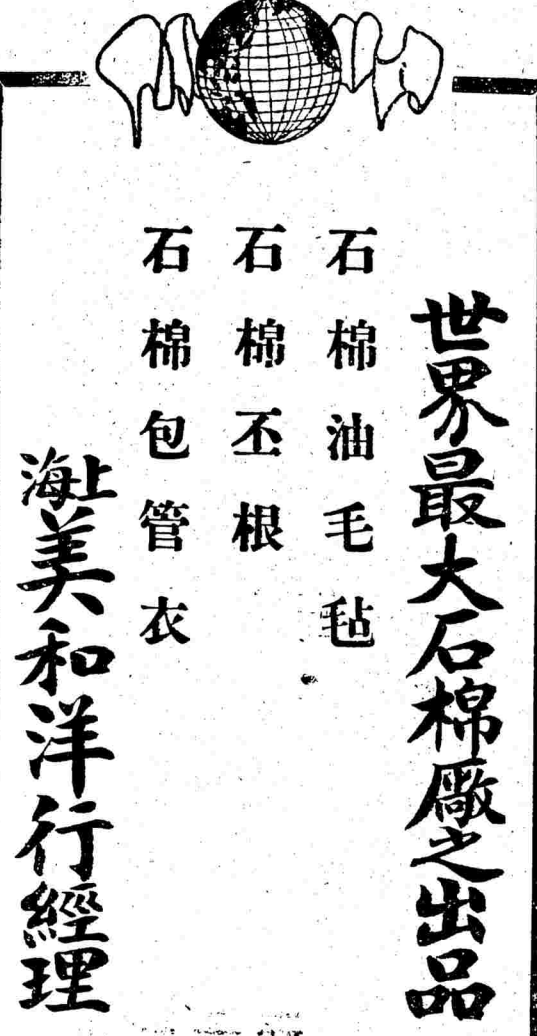 世界最大石棉廠之出品
石棉油毛毡
石棉丕根
石棉包管衣
上海美和洋行經理